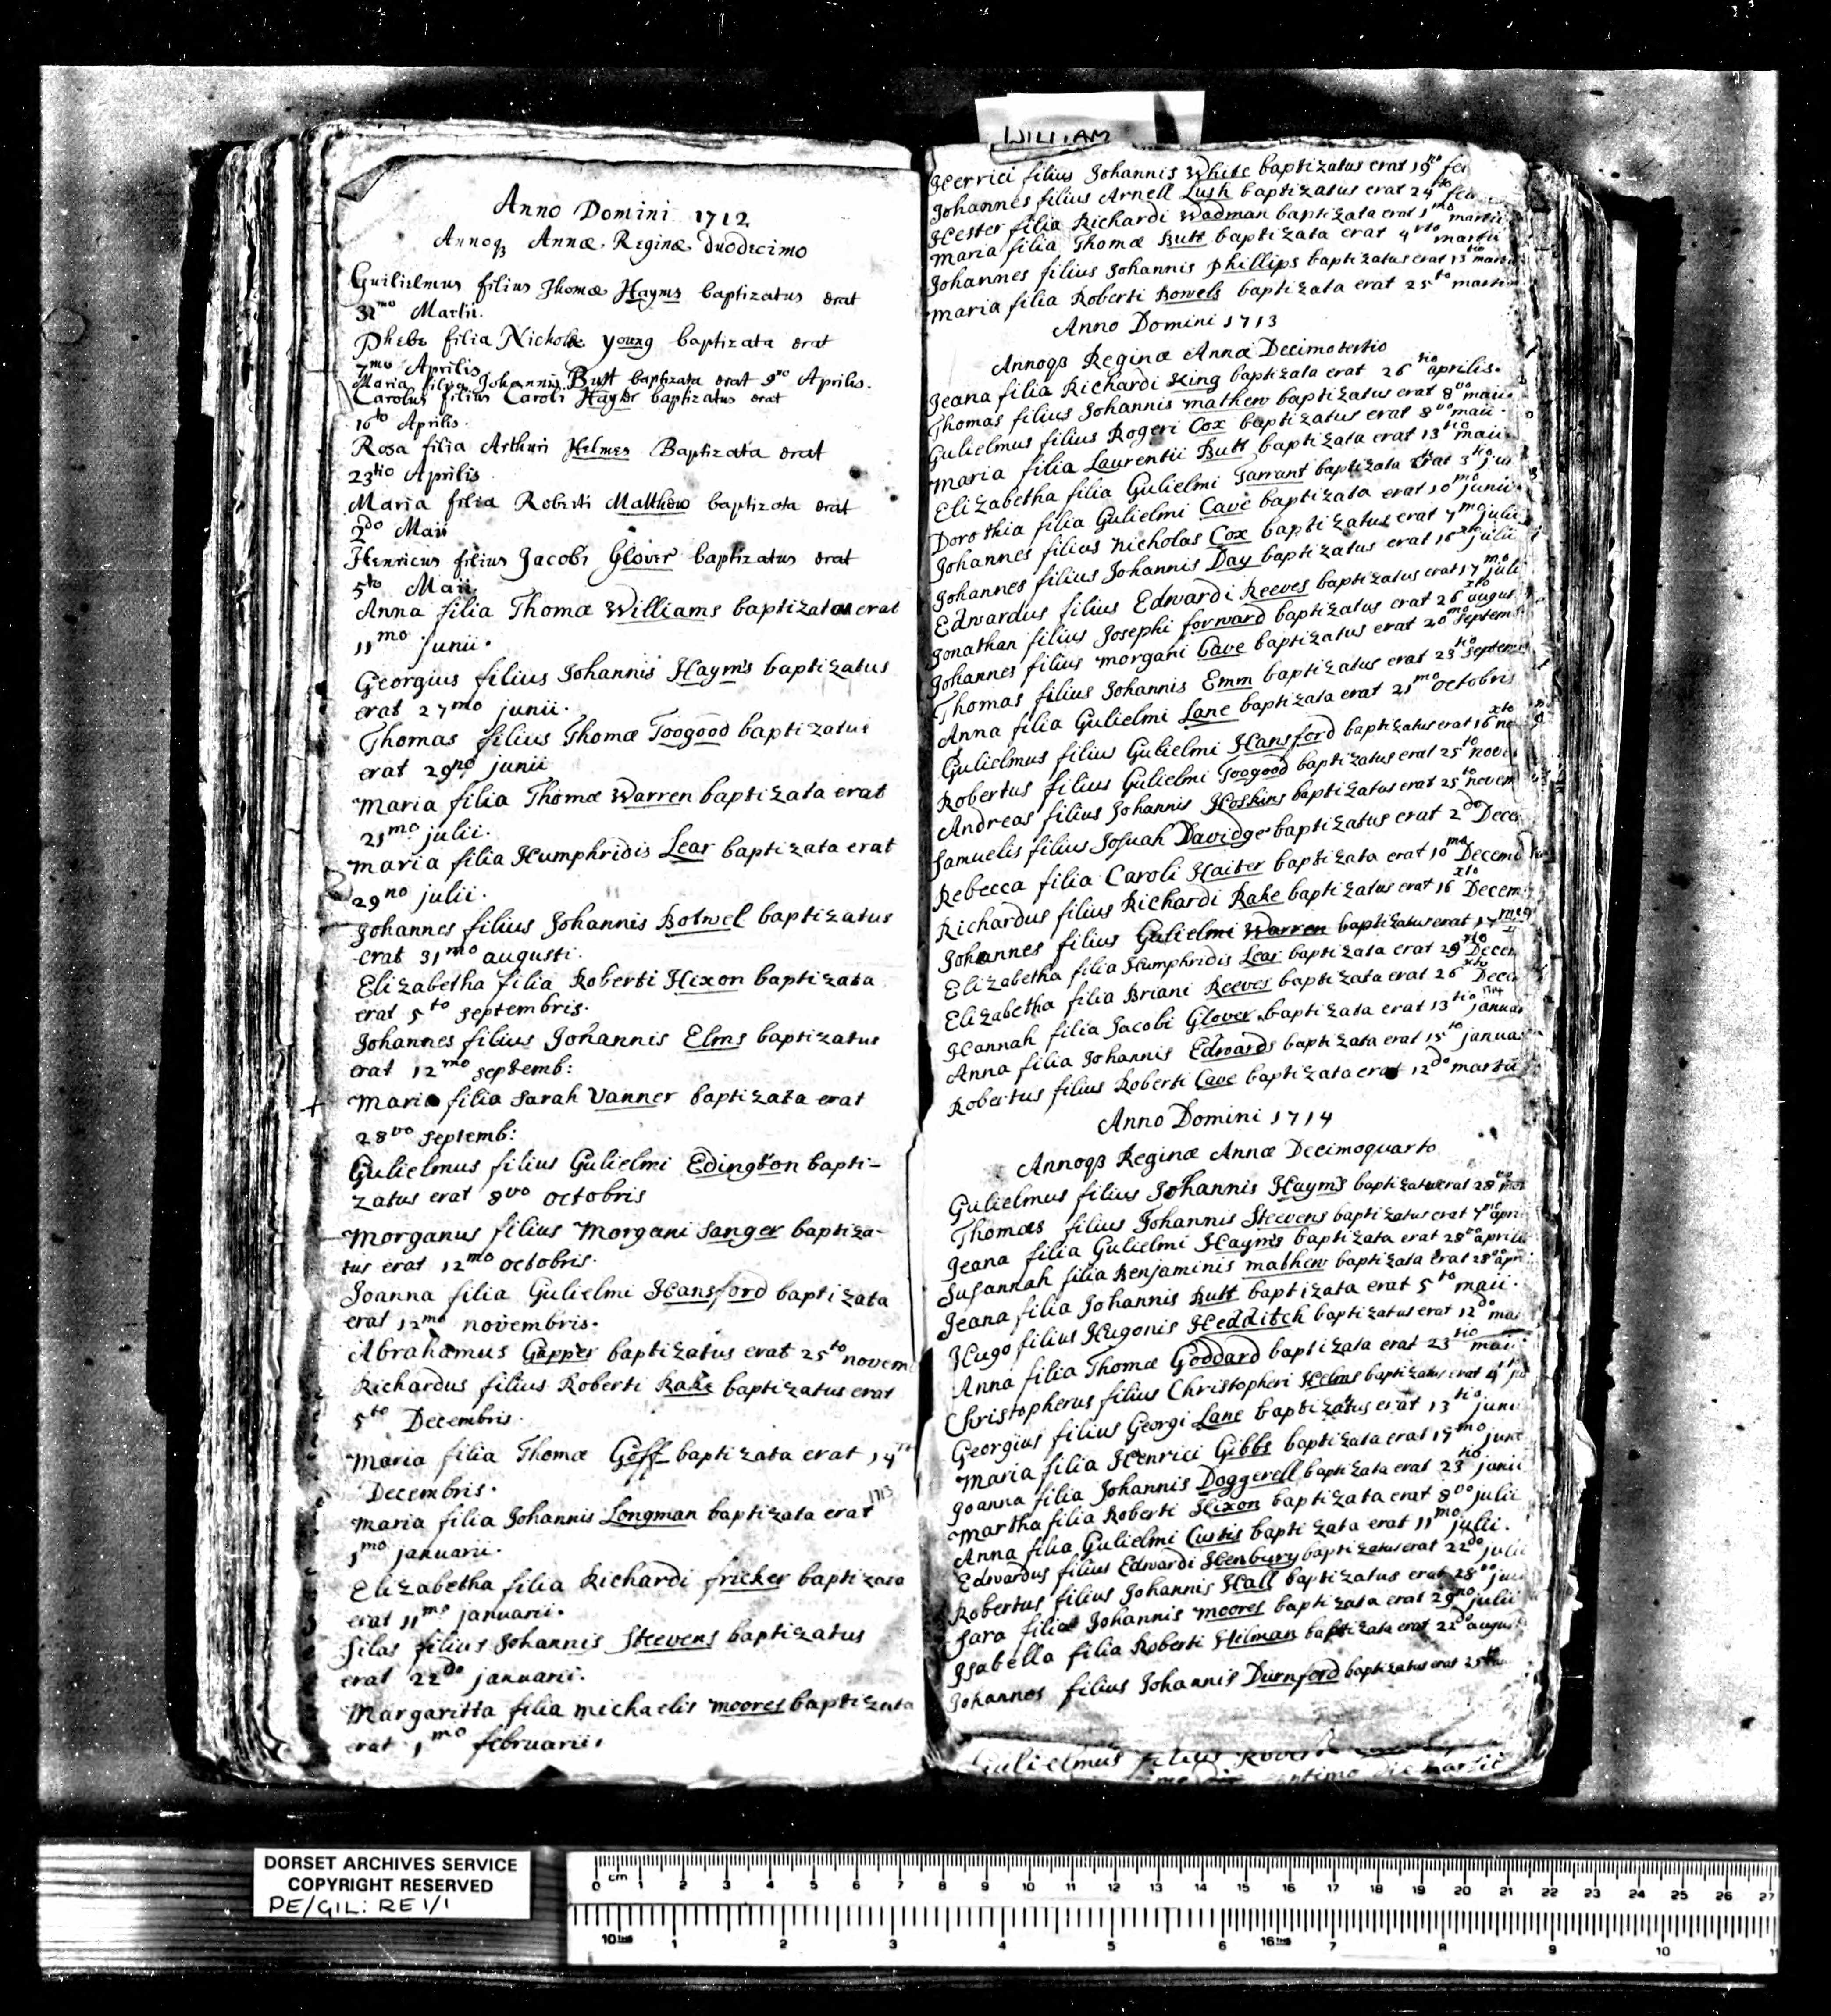 Anno Domini 1712
Annoqȝ Annæ Reginæ duodecimo
Guilielmus filius Thomæ Hayms baptizatus erat
31mo Martii.
Phebe filia Nicholæ young baptizata erat
7mo Aprilis
Maria filia Johannis Butt baptizata erat 9no Aprilis.
Carolus filius Caroli Hayter baptizatus erat
16to Aprilis.
Rosa filia Arthuri Helmes Baptizata erat
23tio Aprilis
Maria filia Roberti Matthew baptizata erat
2do Maii
Henricus filius Jacobi Glover baptizatus erat
5to Maii
Anna filia Thomæ Williams baptizata erat
11mo Junii.
Georgius filius Johannis Hayms baptizatus
erat 27mo junii.
Thomas filius Thomæ Toogood baptizatus
erat 29no junii
Maria filia Thomæ Warren baptizata erat
21mo julii.
Maria filia Humphridis Lear baptizata erat
29no julii.
Johannes filius Johannis Botwel baptizatus
erat 31mo augusti.
Elizabetha filia Roberti Hixon baptizata
erat 5to septembris.
Johannes filius Johannis Elms baptizatus
erat 12mo septemb:
Maria filia Sarah Vanner baptizata erat
28vo septemb:
Gulielmus filius Gulielmi Edington bapti-
zatus erat 8vo octobris
Morganus filius Morgani Sanger baptiza-
tus erat 12mo octobris.
Joanna filia Gulielmi Hansford baptizata
erat 12mo novembris.
Abrahamus Gapper baptizatus erat 25to novem
Richardus filius Roberti Rake baptizatus erat
5to Decembris.
Maria filia Thomæ Goff baptizata erat 14
Decembris.
Maria filia Johannis Longman baptizata erat 1713
1mo januarii.
Elizabetha filia Richardi fricker baptizata
erat 11mo januarii.
Silas filius Johannis Steevens baptizatus
erat 22do januarii.
Margaritta filia michaelis moores baptizata
erat 1mo februarii.
WILLIAM
Herrici filius Johannis White baptizatus erat 19no fe
Johannes filius Arnell Lush baptizatus erat 24to fe
Hester filia Richardi Wadman baptizata erat 1mo martii
Maria filia Thomæ Butt baptizata erat 4rto martii
Johannes filius Johannis Phillips baptizatus erat 13tio mar
Maria filia Roberti Bowels baptizata erat 25to marti
Anno Domini 1713
Annoqȝ Reginæ Annæ Decimotertio
Jeana filia Richardi King baptizata erat 26 aprilis.
Thomas filius Johannis mathew baptizatus erat 8vo maii.
Gulielmus filius Rogeri Cox baptizatus erat 8vo maii.
Maria filia Laurentii Butt baptizata erat 13tio maii
Elizabetha filia Gulielmi Tarrant baptizata erat 3tio jun
Dorothia filia Gulielmi Cave baptizata erat 10mo junii
Johannes filius Nicholas Cox baptizatus erat 7mo julii
Johannes filius Johannis Day baptizatus erat 16xto julii
Edwardus filius Edwardi Reeves baptizatus erat 17mo juli
Jonathan filius Josephi forward baptizatus erat 26xto augus
Johannes filius Morgani Cave baptizatus erat 20mo septem
Thomas filius Johannis Emm baptizatus erat 23tio septem
Anna filia Gulielmi Lane baptizata erat 21mo octobris
Gulielmus filius Gulielmi Hansford baptizatus erat 16xto no
Robertus filius Gulielmi Toogood baptizatus erat 25to nove
Andreas filius Johannis Hoskins baptizatus erat 25to novem
Samuelis filius Josuah Davidge baptizatus erat 2do Dece
Rebecca filia Caroli Haiter baptizata erat 10mo Decem
Richardus filius Richardi Rake baptizatus erat 16xto Decem
Johannes filius Gulielmi Warren baptizatus erat 17mo
Elizabetha filia Humphridis Lear baptizata erat 29no Decem
Elizabetha filia Briani Reeves baptizata erat 26xto Dece
Hannah filia Jacobi Glover baptizata erat 13tio januar 1714
Anna filia Johannis Edwards baptizata erat 15to janua
Robertus filius Roberti Cave baptizata erat 12do martii
Anno Domini 1714
Annoqȝ Reginæ Annæ Decimoquarto
Gulielmus filius Johannis Hayms baptizatus erat 28vo mar
Thomas filius Johannis Steevens baptizatus erat 7mo apri
Jeana filia Gulielmi Hayms baptizata erat 28vo aprilis
Susannah filia Benjaminis mathew baptizata erat 28vo apri
Jeana filia Johannis Butt baptizata erat 5to maii.
Hugo filius Hugonis Hedditch baptizatus erat 12do mai
Anna filia Thomæ Goddard baptizata erat 23tio maii
Christopherus filius Christopheri Helms baptizatus erat 4to ju
Georgius filius Georgi Lane baptizatus erat 13tio juni
Maria filia Henrici Gibbs baptizata erat 17mo juni
Joanna filia Johannis Doggerell baptizata erat 23tio junii
Martha filia Roberti Hixon baptizata erat 8vo julii
Anna filia Gulielmi Curtis baptizata erat 11mo julii.
Edwardus filius Edwardi Henbury baptizatus erat 22do julii
Robertus filius Johannis Hall baptizatus erat 28vo juli
Sara filia Johannis moores baptizata erat 29no julii
Isabella filia Roberti Hilman baptizata erat 22do august
Johannes filius Johannis Durnford baptizatus erat 25to
Gulielmus filius Robert
martii
DORSET ARCHIVES SERVICE
COPYRIGHT RESERVED
PE/GIL: RE 1/1
0 cm 1 2 3 4 5 6 7 8 9 10 11 12 13 14 15 16 17 18 19 20 21 22 23 24 25 26 27
10ths 1 2 3 4 5 6 16ths 7 8 9 10 11